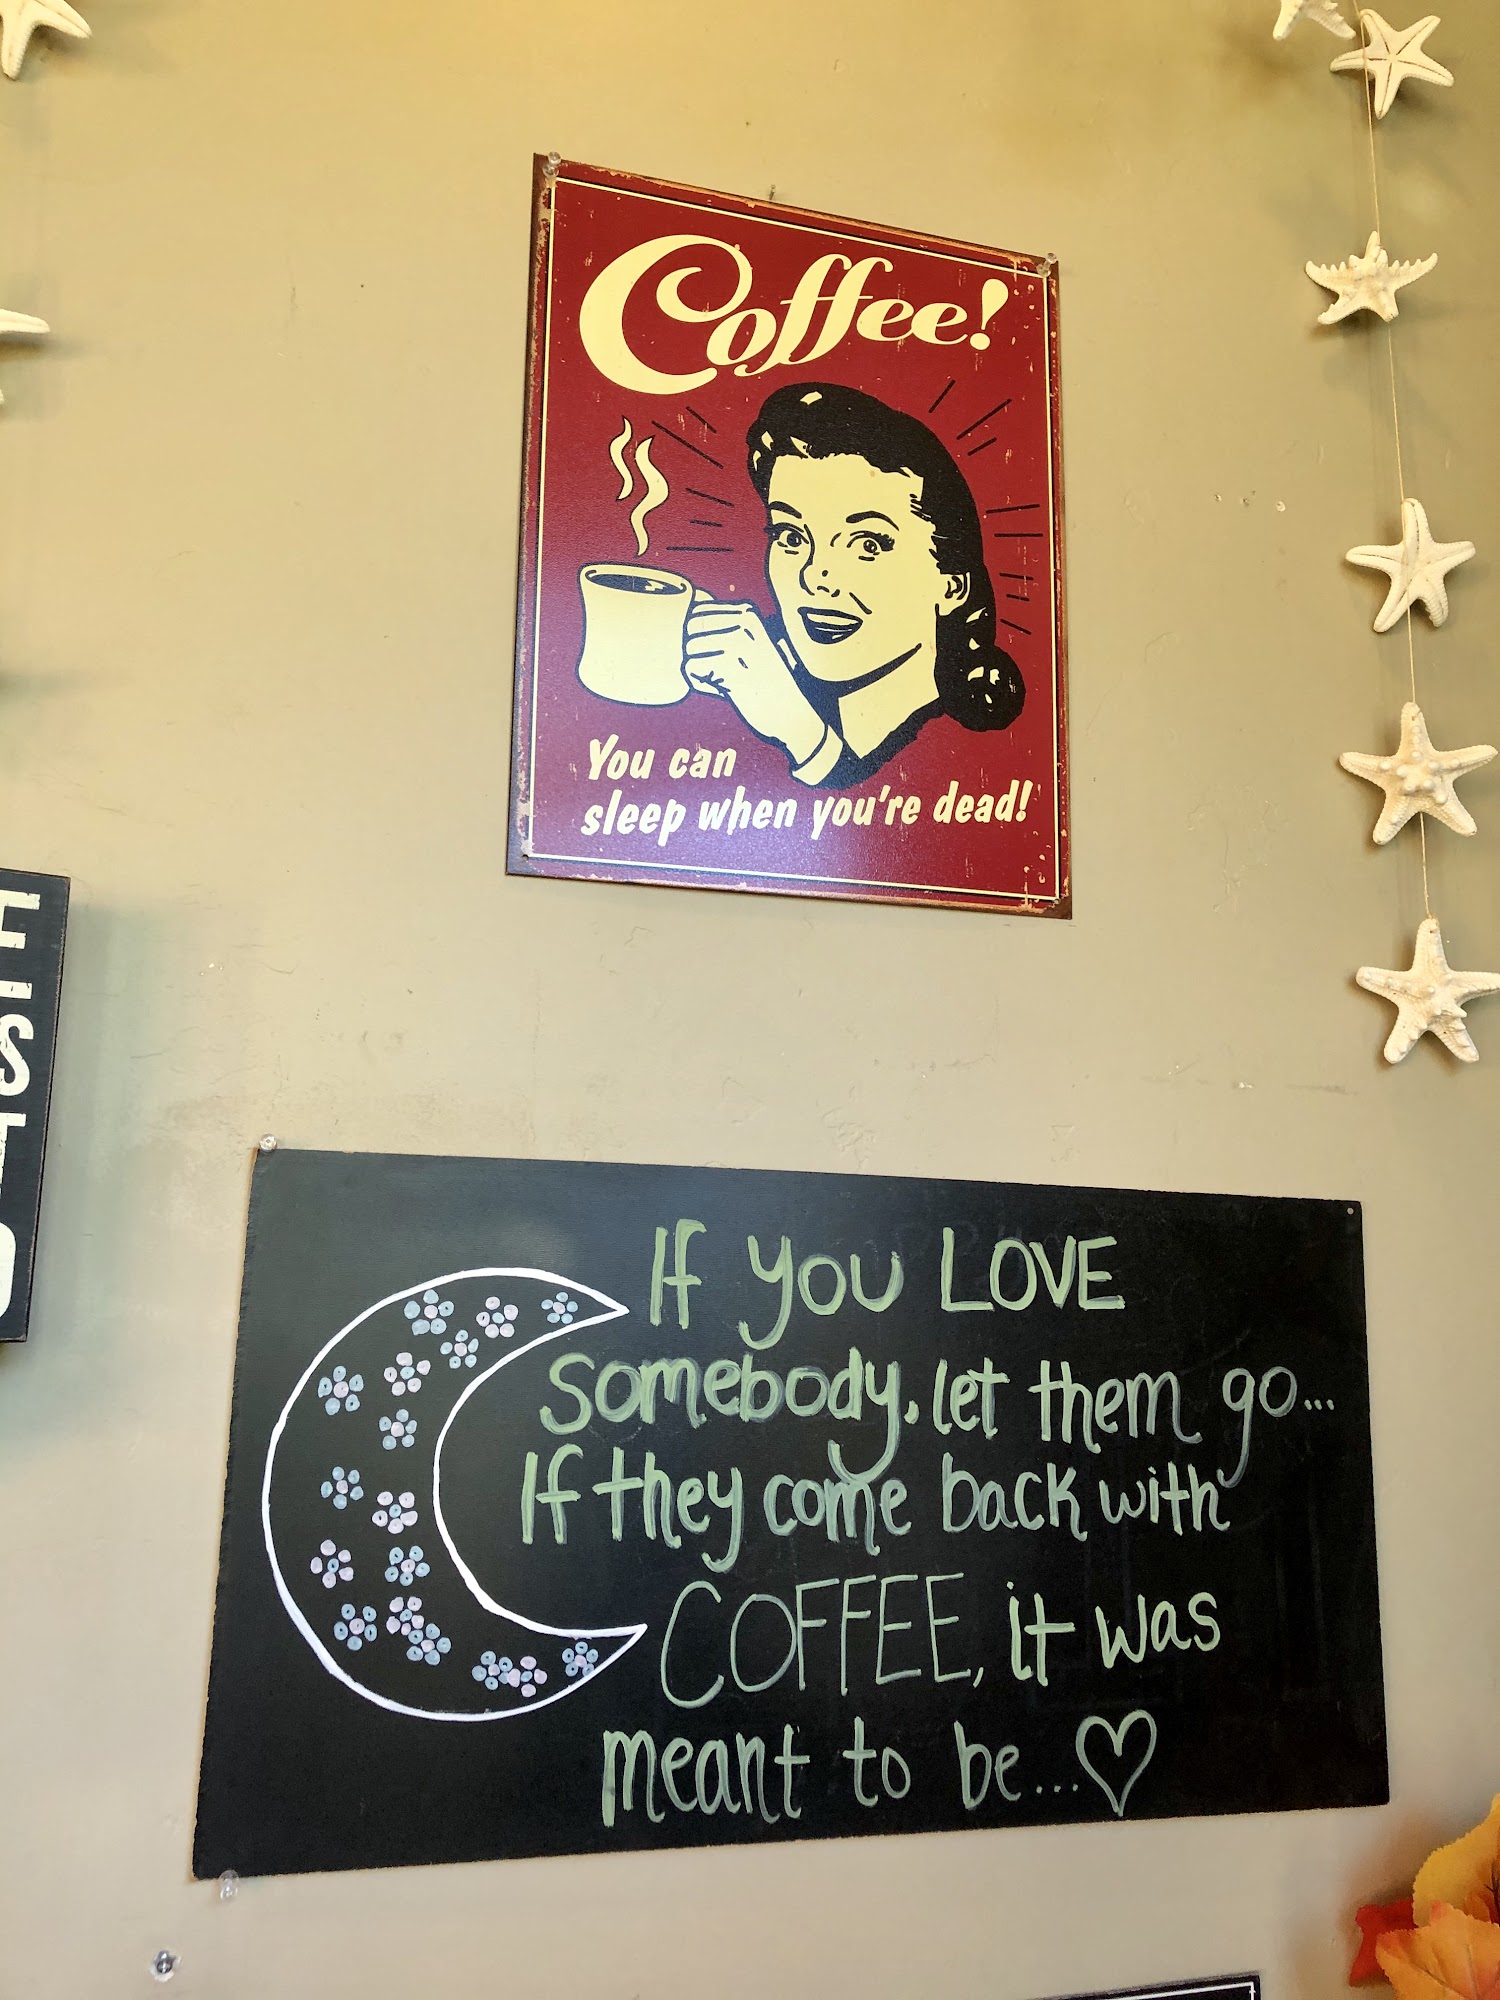 Coffee!
You can
sleep when you're dead!
If you LOVE
somebody, let them go...
If they come back with
COFFEE, it was
meant to be...♡